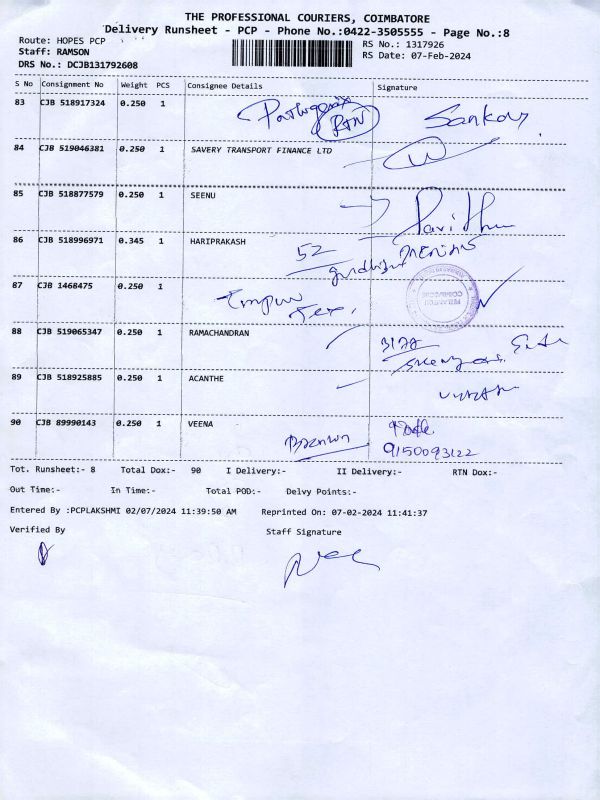 THE PROFESSIONAL COURIERS, COIMBATORE
Delivery Runsheet - PCP - Phone No.:0422-3505555 - Page No.:8
Route: HOPES PCP
RS No.: 1317926
Staff: RAMSON
RS Date: 07-Feb-2024
DRS No.: DCJB131792608
S No Consignment No Weight PCS Consignee Details Signature
83 CJB 518917324 0.250 1 RTN Sankar
84 CJB 519046381 0.250 1 SAVERY TRANSPORT FINANCE LTD
85 CJB 518877579 0.250 1 SEENU
86 CJB 518996971 0.345 1 HARIPRAKASH 52
87 CJB 1468475 0.250 1
88 CJB 519065347 0.250 1 RAMACHANDRAN
89 CJB 518925885 0.250 1 ACANTHE
90 CJB 89990143 0.250 1 VEENA
9150093122
Tot. Runsheet:- 8 Total Dox:- 90 I Delivery:- II Delivery:- RTN Dox:-
Out Time:- In Time:- Total POD:- Delvy Points:-
Entered By :PCPLAKSHMI 02/07/2024 11:39:50 AM Reprinted On: 07-02-2024 11:41:37
Verified By Staff Signature